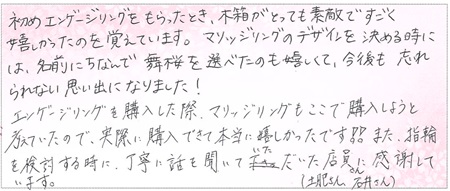 初めエンゲージリングをもらったとき、木箱がとっても素敵ですごく
嬉しかったのを覚えています。マリッジリングのデザインを決める時に
は、名前にちなんで舞桜を選べたのも嬉しくて、今後も忘れ
られない思い出になりました！
エンゲージリングを購入した際、マリッジリングもここで購入しようと
考えていたので、実際に購入できて本当に嬉しかったです!!また、指輪
を検討する時に、丁寧に話を聞いていただいた店員さんに感謝して
います。(土肥さん、石井さん)